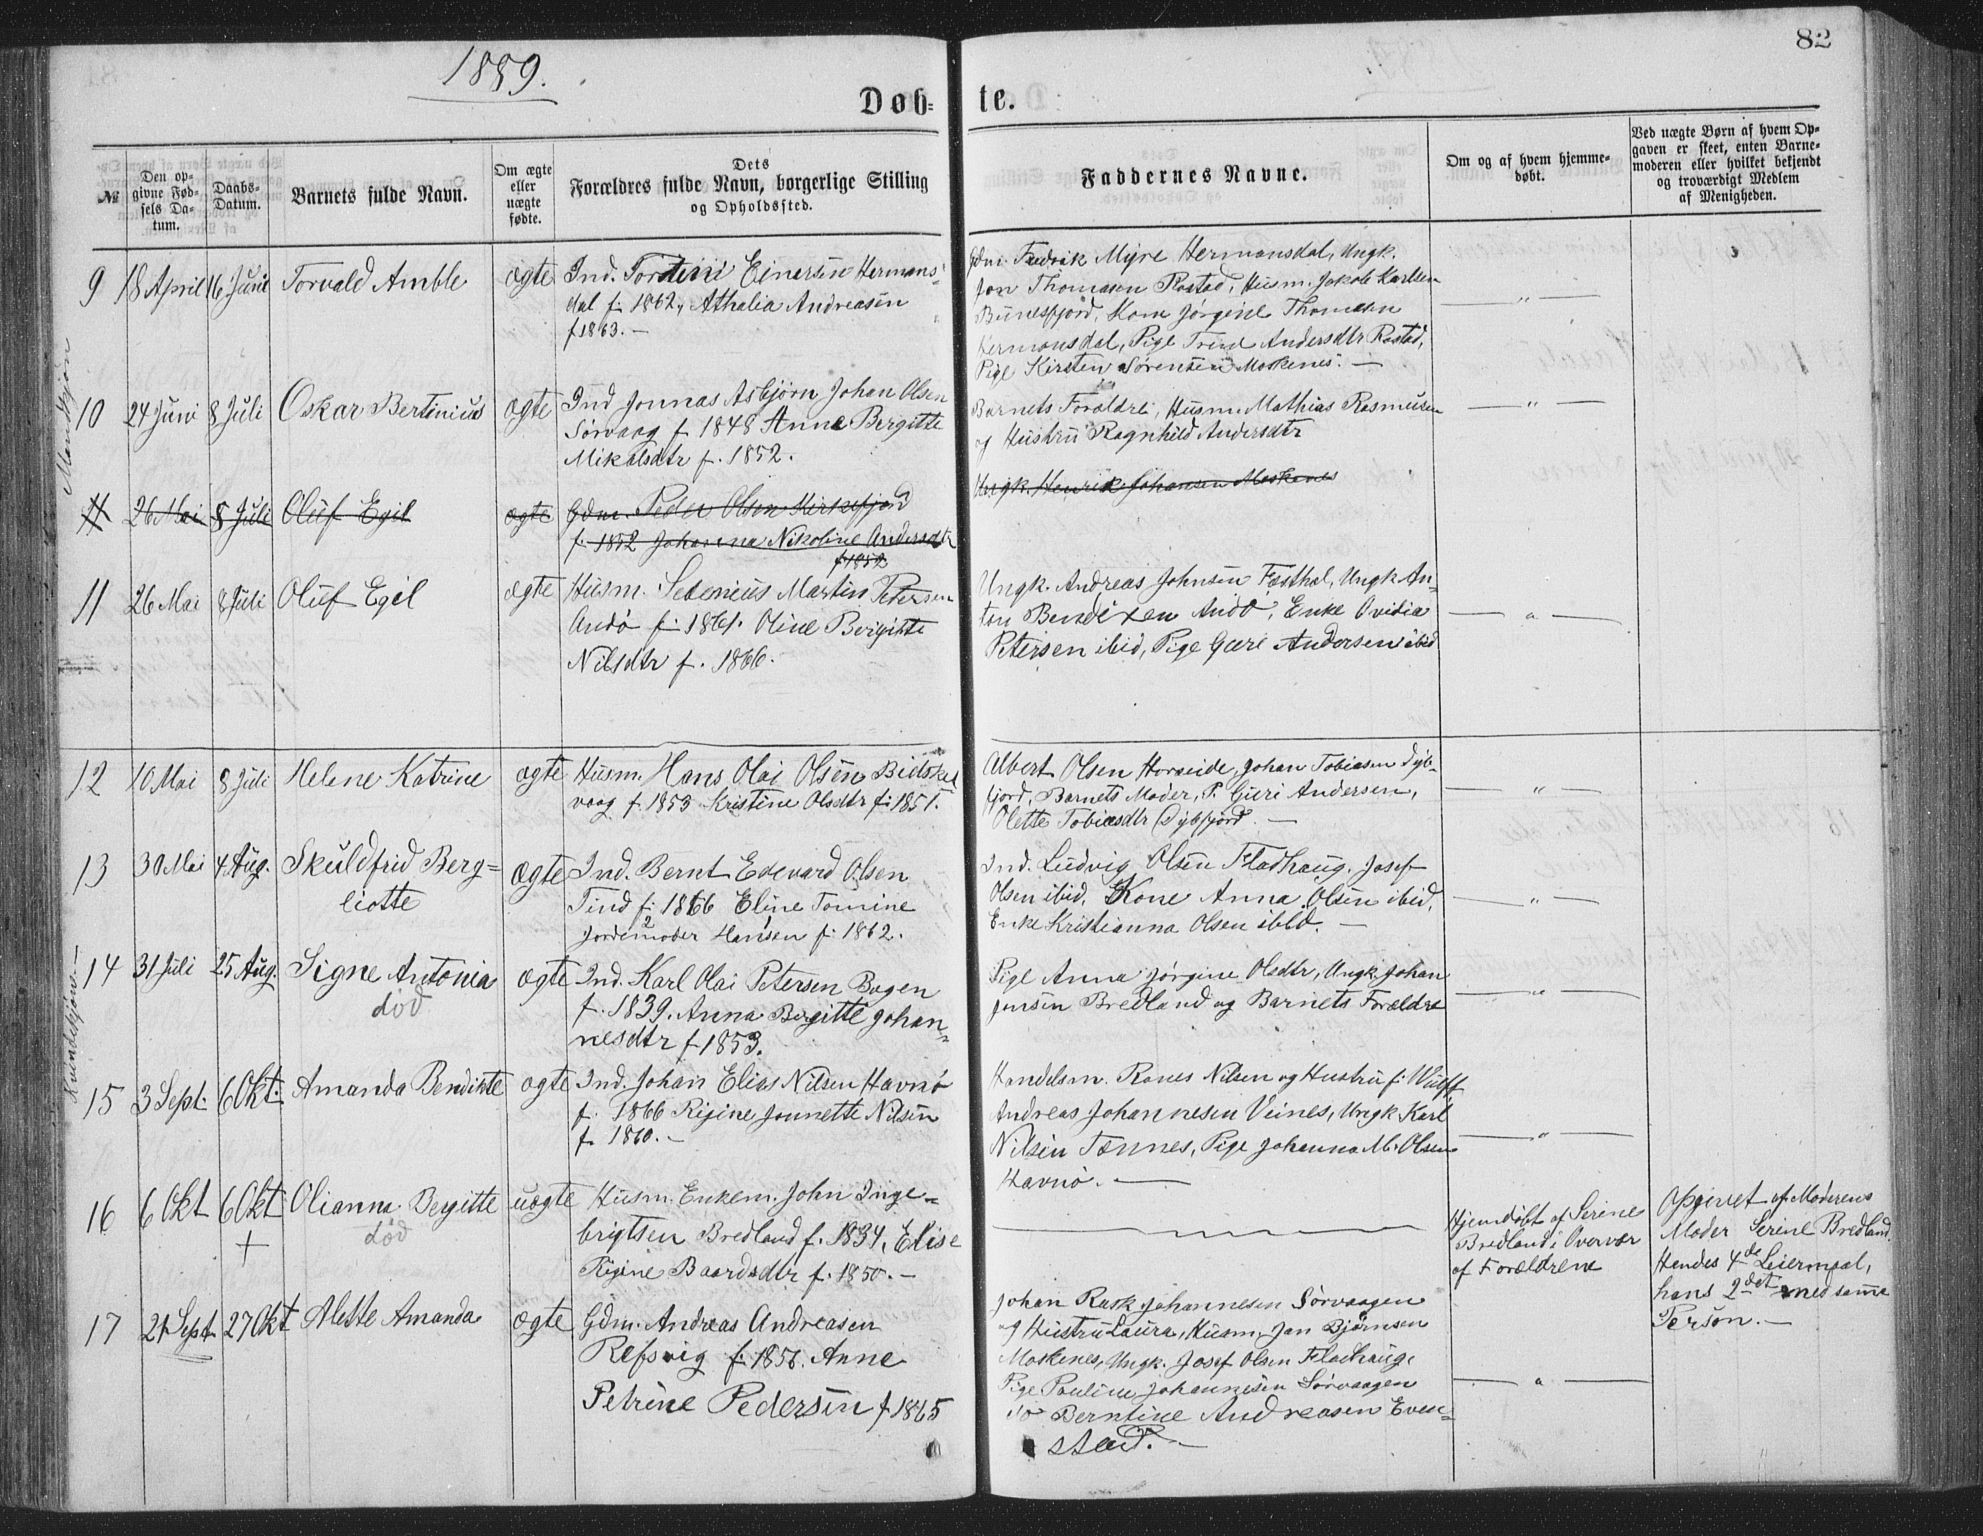 1889.
82
Døb-
te.
№
Den op-
givne Fød-
sels Da-
tum.
Daabs-
Datum.
Barnets fulde Navn.
Om ægte
eller
uægte
fødte.
Dets
Forældres fulde Navn, borgerlige Stilling
og Opholdssted.
Faddernes Navne.
Om og af hvem hjemme-
døbt.
Ved uægte Børn af hvem Op-
gaven er skeet, enten Barne-
moderen eller hvilket bekjendt
og troværdigt Medlem
af Menigheden.
Mandkjøn
9 18 April 16 Juni Torvald Amble ægte Ind. Einersen Hermans-
dal f. 1862, Athalia Andreasen
f 1863.—
Gdm. Fredrik Myre Hermansdal, Ungk.
Jon Thomasen Rostad, Husm. Jakob Karlsen
Bunesfjord, Kone Jørgine Thomesen
Hermansdal, Pige Trine Andersdtr Rostad,
Pige Kirsten Sørensen Moskenes. —
— " —
10 24 Juni 8 Juli Oskar Bertinius ægte Ind Jonnas Asbjørn Johan Olsen
Sørvaag f. 1848 Anne Bergitte
Mikalsdtr f. 1852.
Barnets Forældre, Husm. Mathias Rasmusen
og Hustru Ragnhild Andersdtr
— " —
Ungk. Henrik Johansen Moskenes
11 26 Mai 8 Juli Oluf Egil ægte Gdm. Peder Olsen Kirkefjord
f. 1852 Johanna Nikoline Andersdtr
f 1852
11 26 Mai 8 Juli Oluf Egil ægte Husm. Martin Petersen
Andø f. 1861. Oline Bergitte
Nilsdtr f. 1866.
Ungk. Andreas Johnsen Festhal, Ungk An-
ton Bendixen Andø, Enke Ovidia
Petersen ibid, Pige Guri Andersen ibid
— " —
Kvindekjøn.—
12 10 Mai 8 Juli Helene Katrine ægte Husm. Hans Olai Olsen
vaag f. 1853 Kristine Olsdtr f. 1851.
Albert Olsen Horseide, Johan Tobiasen Dyb-
fjord, Barnets Moder, P. Guri Andersen,
Olette Tobiasdtr Dybfjord. —
— " —
13 30 Mai 4 Aug. Skuldfrid Berg=
liotte
ægte Ind. Bernt Edevard Olsen
Tind f. 1866 Eline Tomine
Jordemoder Hansen f. 1862.
Ind. Ludvig Olsen Fladhaug. Josef
Olsen ibid, Kone Anna Olsen ibid,
Enke Kristianna Olsen ibid. —
— " —
14 31 Juli 25 Aug. Signe Antonia
død
ægte Ind. Karl Olai Petersen Bogen
f. 1839. Anna Bergitte Johan-
nesdtr f 1853.
Pige Anna Jørgine Olsdtr, Ungk Johan
Jensen Bredland og Barnets Forældre
— " —
15 3 Sept. 6 Okt. Amanda Bendikte ægte Ind. Johan Elias Nilsen Havnø
f. 1866 Rigine Jonnette Nilsen
f. 1860.—
Handelsm. Ranes Nilsen og Hustru f. Wulff
Andreas Johannesen Veines, Ungk Karl
Nilsen Tennes, Pige Johanna M. Olsen
Havnø. —
— " —
16 6 Okt 6 Okt
+
Olianna Bergitte
død
uægte Husm. Enkem. John Inge-
brigtsen Bredland f. 1834, Elise
Rigine Baardsdtr f. 1850.—
Hjemdøbt af Serine
Bredland i Overvær
af Forældrene
Opgivet af Moderens
Moder Serine Bredland.
Hendes 4de Leiermaal,
hans 2det med samme
Person.—
17 21 Sept 27 Okt Alette Amanda ægte Gdm. Andreas Andreasen
Refsvig f. 1856. Anne
Petrine Pedersen f 1865
Johan Rask Johannesen Sørvaagen
og Hustru Laura, Husm. Jan Bjørnsen
Moskenes, Ungk. Josef Olsen Fladhaug,
Pige Pauline Johannesen Sørvaagen
do Berntine Andreasen Even-
stad.—
— " —